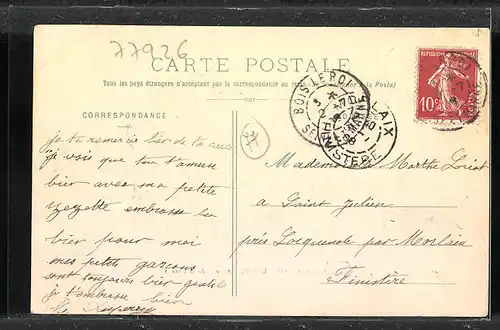 77926
CARTE POSTALE
Tous les pays étrangers n'acceptent pas la correspondance au recto
CORRESPONDANCE
BOIS LE ROI
FINISTERE
LAIX
10c
77
je te remercie bien de ta carte
je vois que tu t'amuse
bien avec ma petite
embrasse la
bien pour moi
mes petits garçons
sont toujours bien gentils
je t'embrasse bien
Mademoiselle Marthe Loriot
a Saint Julien
près Locquenole par Morlaix
Finistère